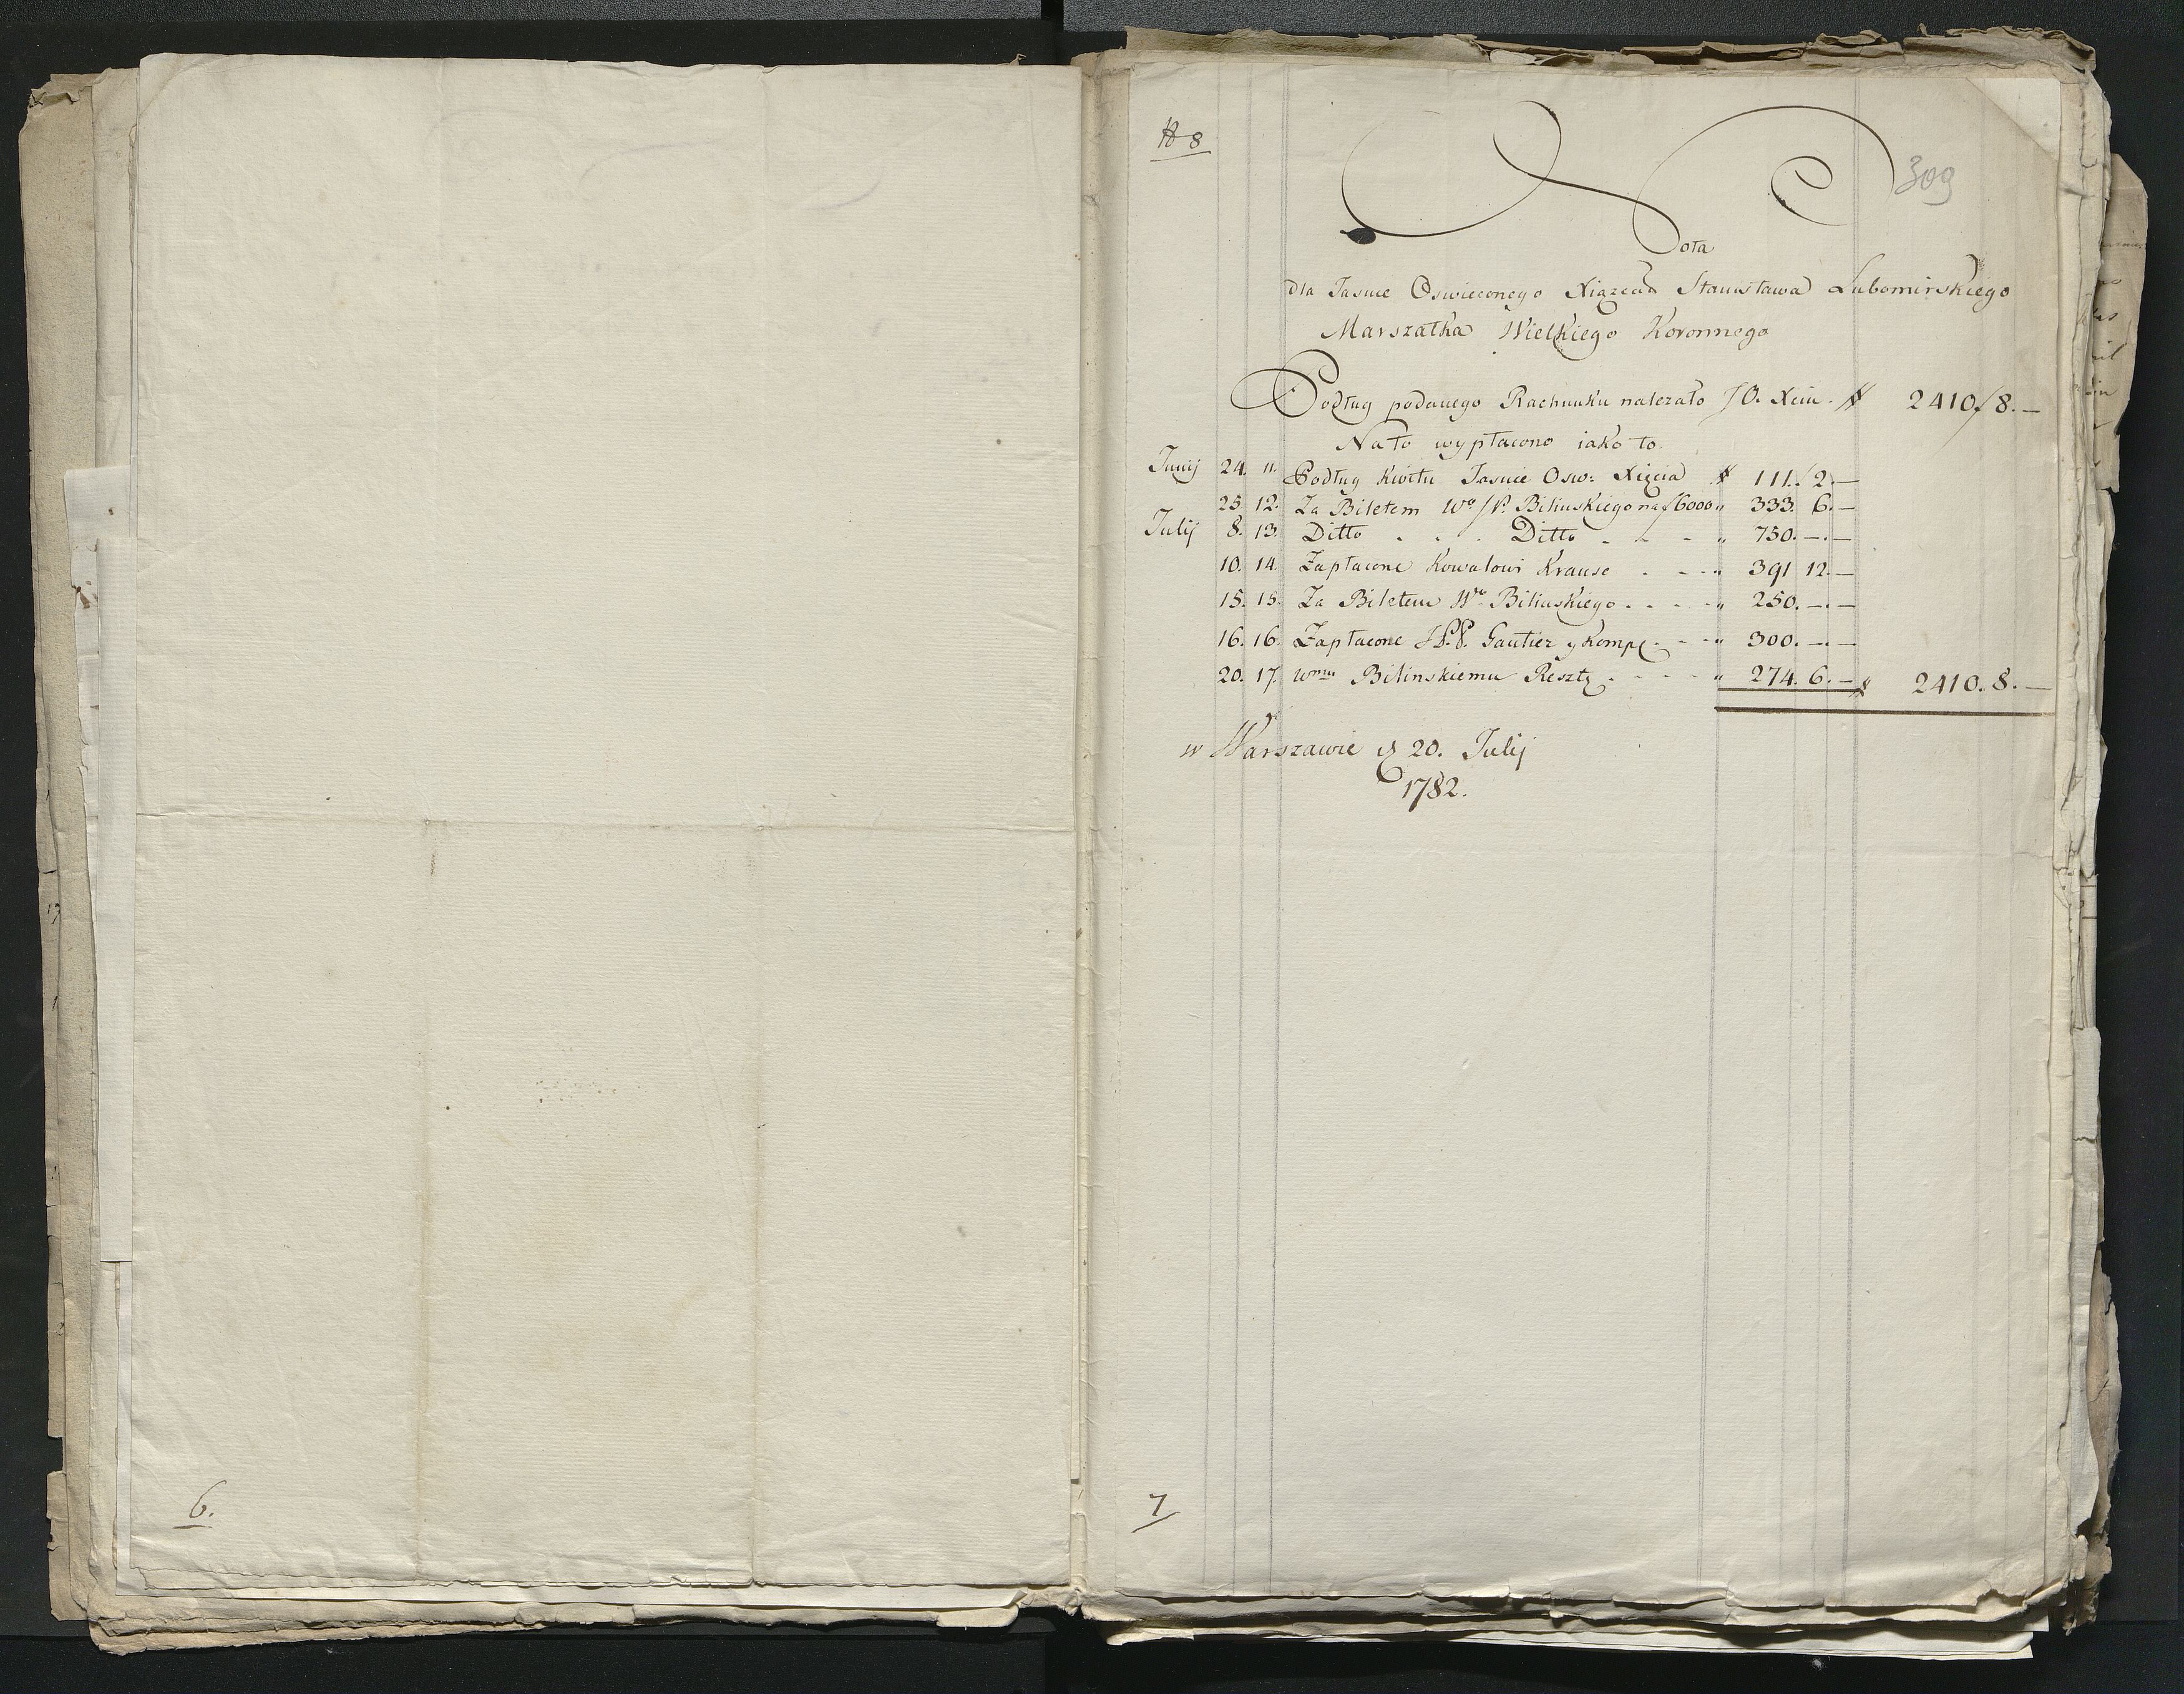 № 8
309
Nota
dla Jasnie Oswieconego Xiązęcia Stanisława Lubomirskiego
Marszałka Wielkiego Koronnego
Podług podanego Rachunku nalezało JO. Xciu # 2410/8.—
Na to wypłacono iako to.
Junij 24. 11. Podług Kwitu Jasnie Osw: Xięcia # 111./2.—
25 12. Za Biletem Wo JP. Bilinskiego na f6000 „ 333. 6.—
Julij 8. 13. Ditto . . . Ditto . - - „ 750.—.—
10. 14. Zapłacone Kowalowi Krause . - - „ 391 12.—
15. 15. Za Biletem Wo Bilinskiego . - - - „ 250.—.—
16. 16. Zapłacone JPP. Gautier y Komp. - - „ 300.—.—
20. 17. Wmu Bilinskiemu Resztę . - - - „ 274. 6.— # 2410. 8.—
w Warszawie d 20. Julij
1782.
6.
7